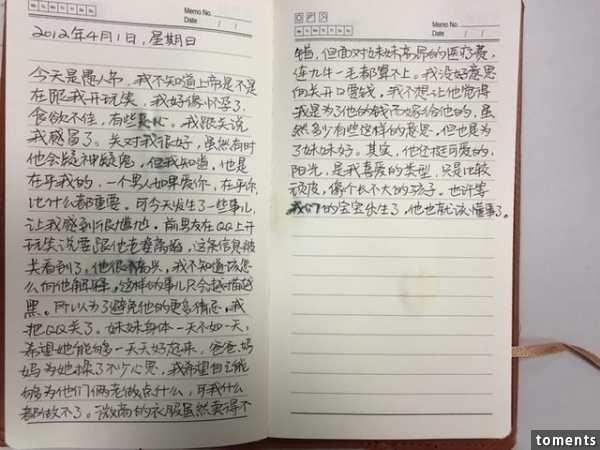 Memo No.
Date
2012年4月1日，星期日
今天是愚人节，我不知道上帝是不是
在跟我开玩笑，我好像怀孕了，
食欲不佳，有些恶心。我跟关说
我感冒了。关对我很好，虽然有时
他会疑神疑鬼，但我知道，他是
在乎我的，一个男人如果爱你，在乎你
比什么都重要。可今天发生了一些事儿，
让我感到很尴尬。前男友在QQ上开
玩笑说要跟他老婆离婚，这条信息被
关看到了，他很不高兴，我不知道该怎
么向他解释，这样的事儿只会越描越
黑。所以为了避免他的更多猜忌，我
把QQ关了。妹妹身体一天不如一天，
希望她能够一天天好起来，爸爸妈
妈为她操了不少心思，我希望自己能
够为他们俩老做点什么，可我什么
都做不了。微商的衣服虽然卖得不
Memo No.
Date
错，但面对妹妹高昂的医疗费，
连九牛一毛都算不上。我没好意思
向关开口要钱，我不想让他觉得
我是为了他的钱而嫁给他的，虽
然多少有些这样的意思，但也是为
了妹妹好。其实，他还挺可爱的，
阳光，是我喜爱的类型，只是比较
顽皮，像个长不大的孩子。也许等
我们的宝宝出生了，他也就该懂事了。
toments